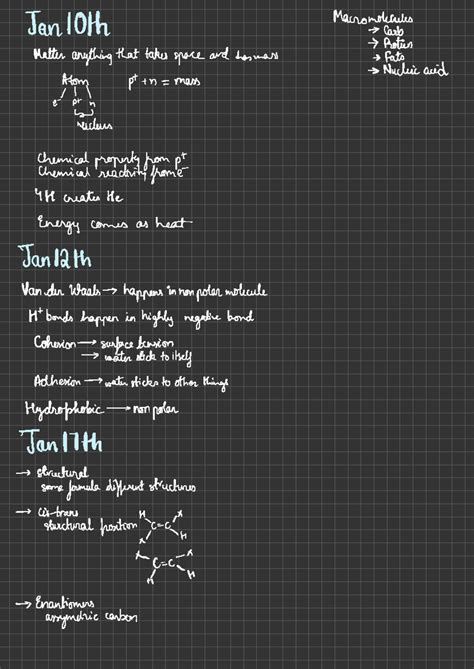 Jan 10th
Matter anything that takes space and has mass
Atom
p+ + n = mass
e- p+ n
nucleus
Chemical property from p+
Chemical reactivity from e-
4H creates He
Energy comes as heat
Macromolecules
→ Carb
→ Protien
→ Fats
→ Nucleic acid
Jan 12th
Van der Waals → happens in non polar molecule
H+ bonds happen in highly negative bond
Cohesion → surface tension
→ water stick to itself
Adhesion → water sticks to other things
Hydrophobic → non polar
Jan 17th
→ structural
same formula different structures
→ cis-trans
structural position
H X
C=C
X H
X X
C=C
H H
→ Enantiomers
assymetric carbon